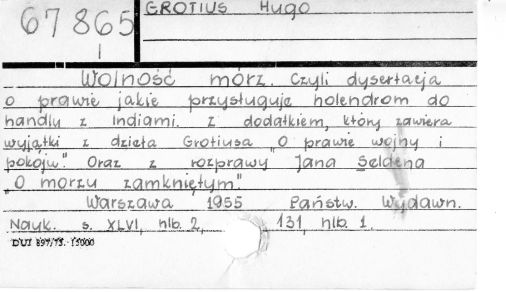 67865
I
GROTIUS Hugo
Wolność mórz. Czyli dysertacja
o prawie jakie przysługuje holendrom do
handlu z Indiami. Z dodatkiem, który zawiera
wyjątki z dzieła Grotiusa "O prawie wojny i
pokoju". Oraz z rozprawy Jana Seldena
"O morzu zamkniętym."
Warszawa 1955 Państw. Wydawn.
Nauk. s. XLVI, nlb. 2, 131, nlb. 1.
DUJ 897/75. 15000